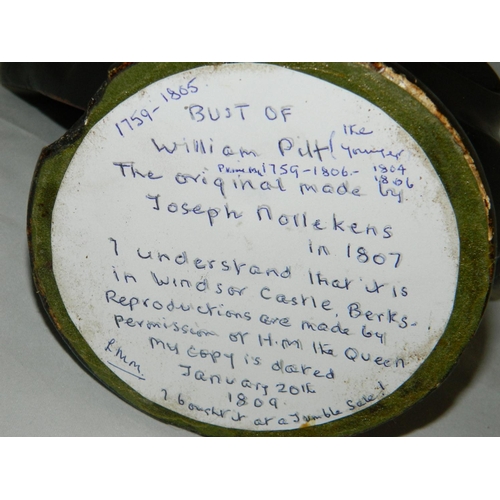 1759-1805
BUST OF
William Pitt/ the younger
Prime M. 1759-1806. - 1804 1806
The original made by
Joseph Nollekens
in 1807
I understand that it is
in Windsor Castle, Berks.
Reproductions are made by
permission of H.M. the Queen
My copy is dated
January 20th
1809.
I bought it at a Jumble Sale!
R.M.M.